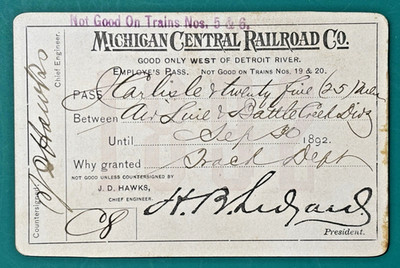 Not Good On Trains Nos. 5 & 6.
MICHIGAN CENTRAL RAILROAD CO.
GOOD ONLY WEST OF DETROIT RIVER.
EMPLOYE'S PASS. NOT GOOD ON TRAINS NOS. 19 & 20.
PASS Karlisle & twenty five (25) Men
Between Air Line & Battle Creek Divs
Until Sep 30 1892.
Why granted Track Dept
NOT GOOD UNLESS COUNTERSIGNED BY
J. D. HAWKS,
CHIEF ENGINEER.
H. B. Ledyard.
President.
Countersigned
J D Hawks
Chief Engineer.